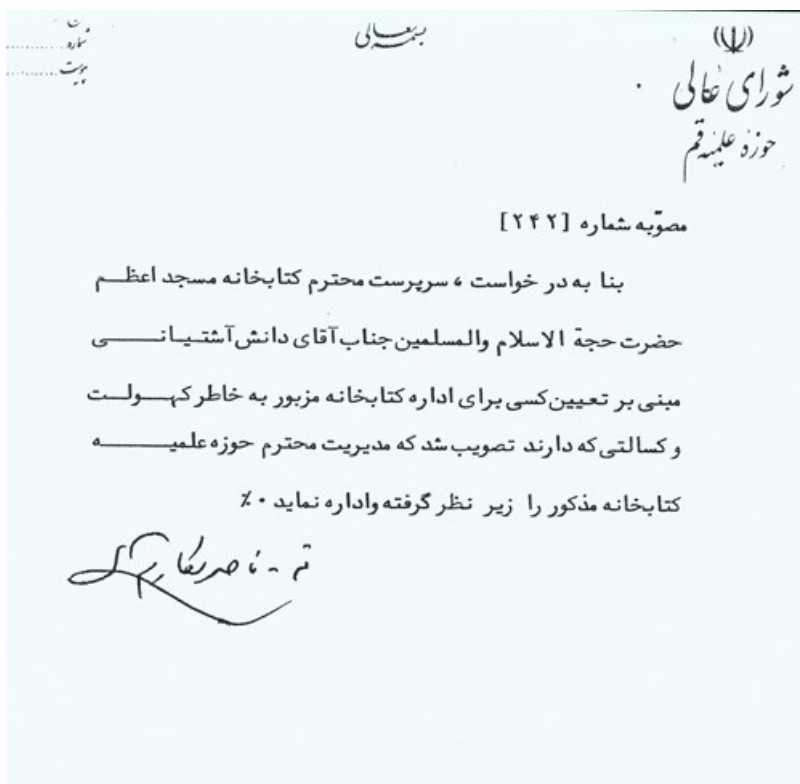 بسمه تعالی
شماره
پیوست
شورای عالی
حوزه علمیه قم
مصوّبه شماره [۲۴۲]
بنا به در خواست ، سرپرست محترم کتابخانه مسجد اعظم
حضرت حجة الاسلام والمسلمین جناب آقای دانش آشتیانی
مبنی بر تعیین کسی برای اداره کتابخانه مزبور به خاطر کهولت
و کسالتی که دارند تصویب شد که مدیریت محترم حوزه علمیه
کتابخانه مذکور را زیر نظر گرفته واداره نماید ۰٪
قم - ناصر مکارم